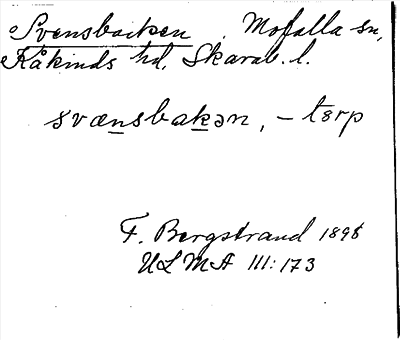 Svensbacken. Mofalla sn,
Kåkinds hd, Skarab. l.
svænsbakən, – tərp
F. Bergstrand 1898
ULMA III: 173